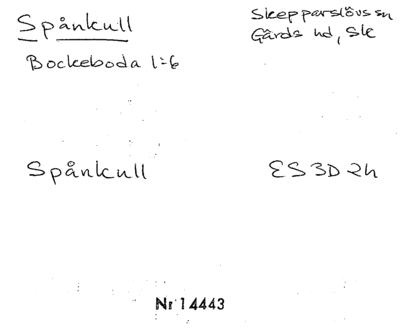 Spånkull
Skepparslövs sn
Gärds hd, Sk
Bockeboda 1:6
Spånkull
ES 3D 2h
Nr 14443